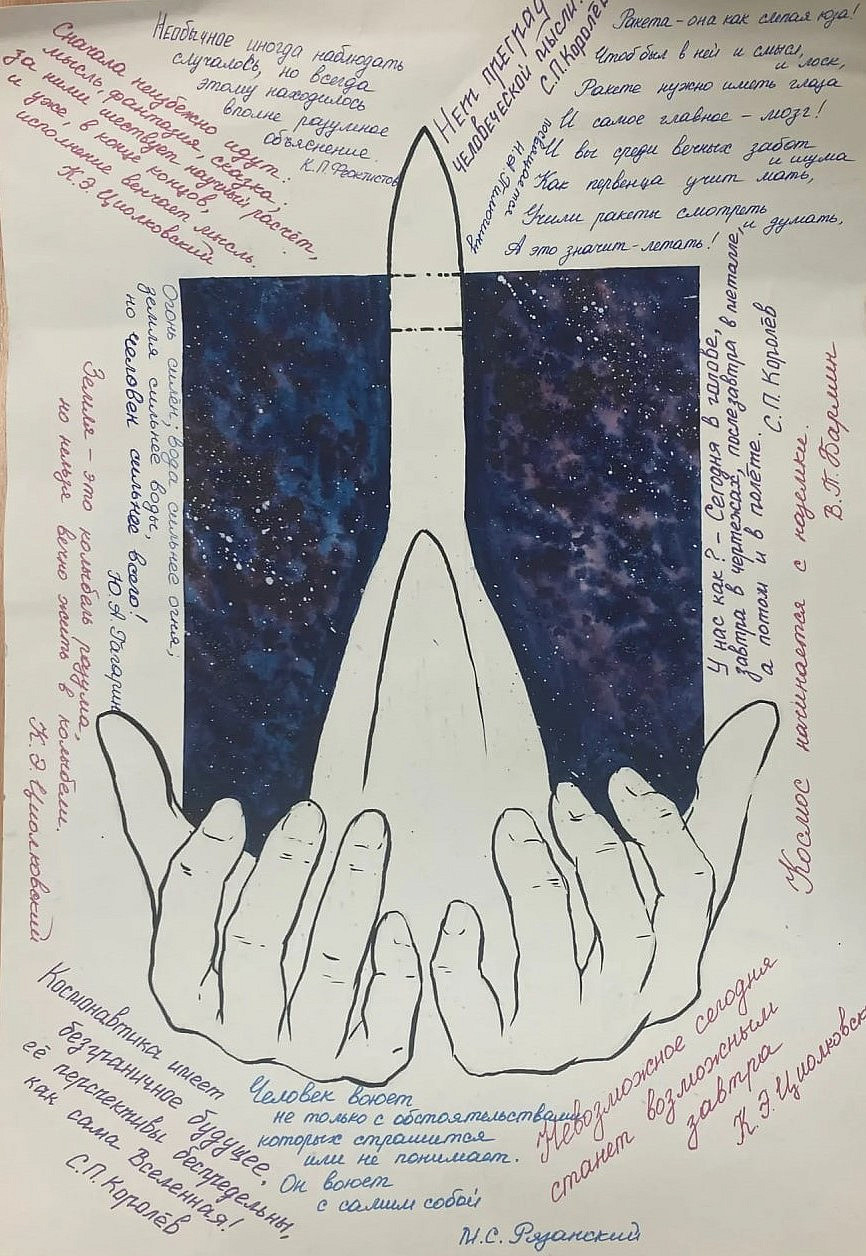 Сначала неизбежно идут:
мысль, фантазия, сказка;
за ними шествует научный расчёт,
и уже, в конце концов,
исполнение венчает мысль.
К.Э.Циолковский
Необычное иногда наблюдать
случалось, но всегда
этому находилось
вполне разумное
объяснение.
К.П.Феоктистов
Нет преград
человеческой мысли!
С.П.Королёв
посвящается
Н.А. Пилюгину
Ракета - она как слепая юза!
Чтоб был в ней и смысл,
и лоск,
Ракете нужно иметь глаза
И самое главное - мозг!
И вы среди вечных забот
и шума
Как первенца учит мать,
Учили ракеты смотреть
и думать,
А это значит - летать!
Огонь силён, вода сильнее огня;
земля сильнее воды,
но человек сильнее всего!
Ю.А.Гагарин
Земля - это колыбель разума,
но нельзя вечно жить в колыбели.
К.Э.Циолковский
У нас как? - Сегодня в голове,
завтра в чертежах, послезавтра в металле,
а потом и в полёте.
С.П.Королёв
Космос начинается с наземки.
В.П.Бармин
Космонавтика имеет
безграничное будущее,
её перспективы беспредельны,
как сама Вселенная!
С.П.Королёв
Человек воюет
не только с обстоятельствами
которых страшится
или не понимает.
Он воюет
с самим собой
М.С. Рязанский
Невозможное сегодня
станет возможным
завтра
К.Э.Циолковск